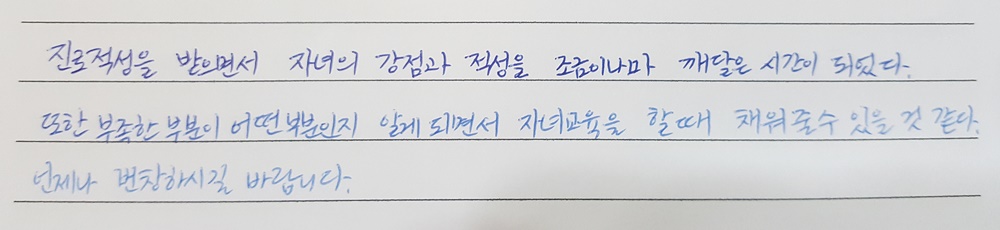 진로적성을 받으면서 자녀의 강점과 적성을 조금이나마 깨달은 시간이 되었다.
또한 부족한 부분이 어떤부분인지 알게 되면서 자녀교육을 할때 채워줄수 있을 것 같다.
언제나 번창하시길 바랍니다.